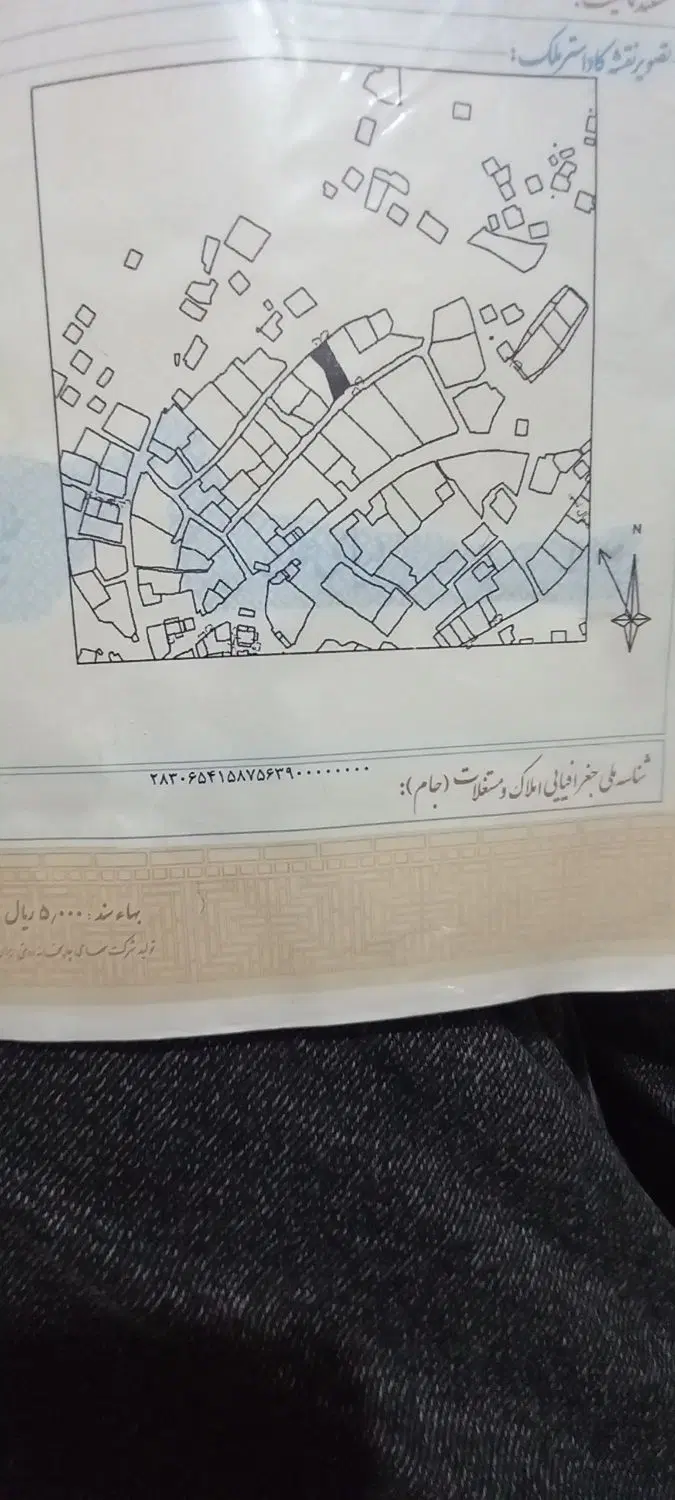 تصویر نقشه کاداستر ملک:
N
شناسه ملی جغرافیایی املاک و مستغلات (جام):
۲۸۳۰۶۵۴۱۵۸۷۵۶۳۹۰۰۰۰۰۰۰۰
بهاء سند: ۵,۰۰۰ ریال
تولید شرکت